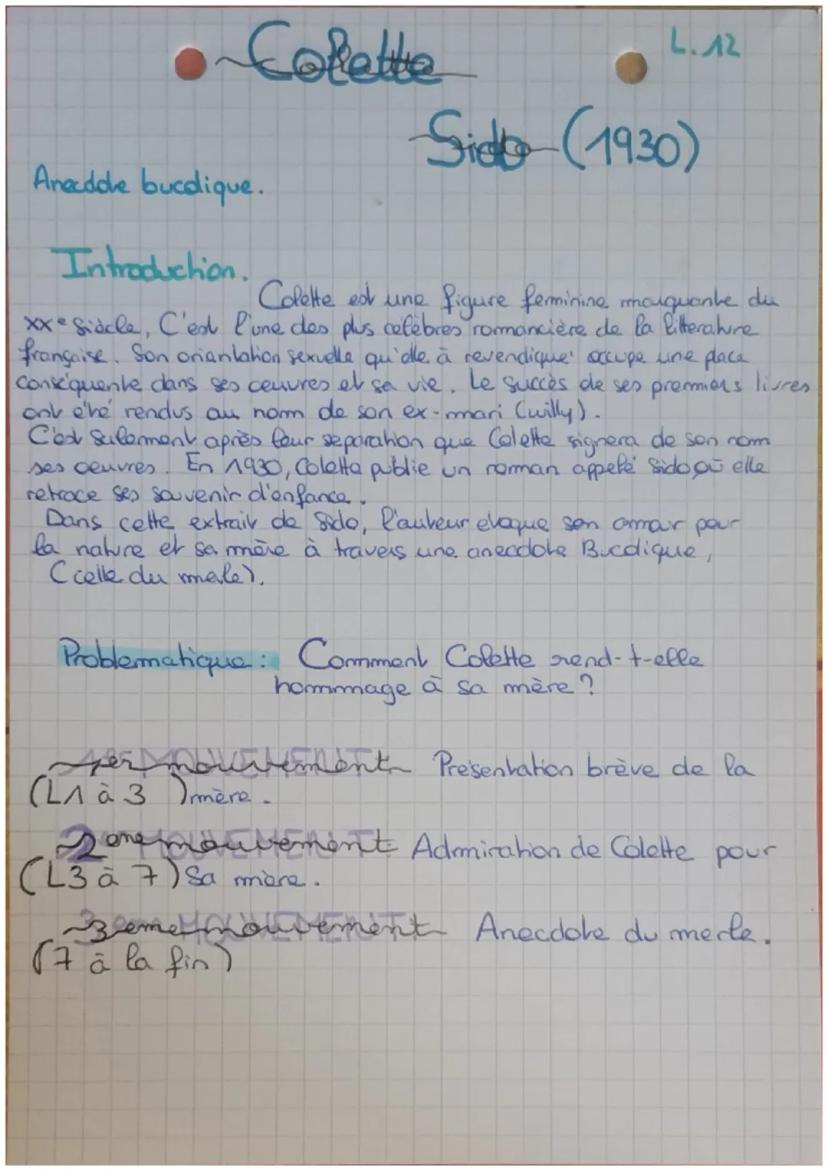 Colette
L.12
Sido (1930)
Anecdote bucolique.
Introduction.
Colette est une figure feminine marquante du
XXe siècle, C'est l'une des plus célèbres romancière de la litterature
française. Son oriantation sexuelle qu'elle à revendiqué occupe une place
conséquente dans ses oeuvres et sa vie. Le succès de ses premiers livres
ont été rendus au nom de son ex-mari (willy).
C'est seulement après leur separation que Colette signera de son nom
ses oeuvres. En 1930, Colette publie un roman appelé Sido où elle
retrace ses souvenir d'enfance.
Dans cette extrait de Sido, l'auteur evoque son amour pour
la nature et sa mère à travers une anecdote Bucolique,
(celle du merle).
Problematique : Comment Colette rend-t-elle
hommage à sa mère ?
1er mouvement Présentation brève de la
(L1 à 3) mère.
2eme mouvement Admiration de Colette pour
(L3 à 7) Sa mère.
3eme mouvement Anecdote du merle.
(7 à la fin)